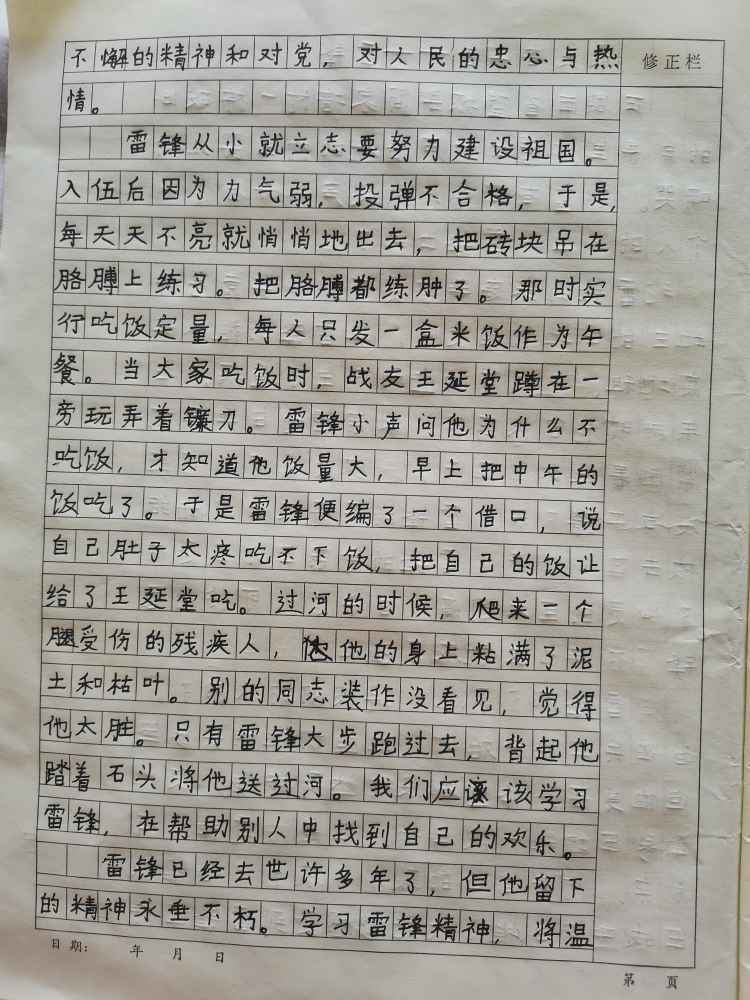 不懈的精神和对党，对人民的忠心与热
修正栏
情。
雷锋从小就立志要努力建设祖国。
入伍后因为力气弱，投弹不合格，于是，
每天天不亮就悄悄地出去，把砖块吊在
胳膊上练习。把胳膊都练肿了。那时实
行吃饭定量，每人只发一盒米饭作为午
餐。当大家吃饭时，战友王延堂蹲在一
旁玩弄着镰刀。雷锋小声问他为什么不
吃饭，才知道他饭量大，早上把中午的
饭吃了。于是雷锋便编了一个借口，说
自己肚子太疼吃不下饭，把自己的饭让
给了王延堂吃。过河的时候，爬来一个
腿受伤的残疾人，他的身上粘满了泥
土和枯叶。别的同志装作没看见，觉得
他太脏。只有雷锋大步跑过去，背起他
踏着石头将他送过河。我们应该学习
雷锋，在帮助别人中找到自己的欢乐。
雷锋已经去世许多年了，但他留下
的精神永垂不朽。学习雷锋精神，将温
日期： 年 月 日
第 页